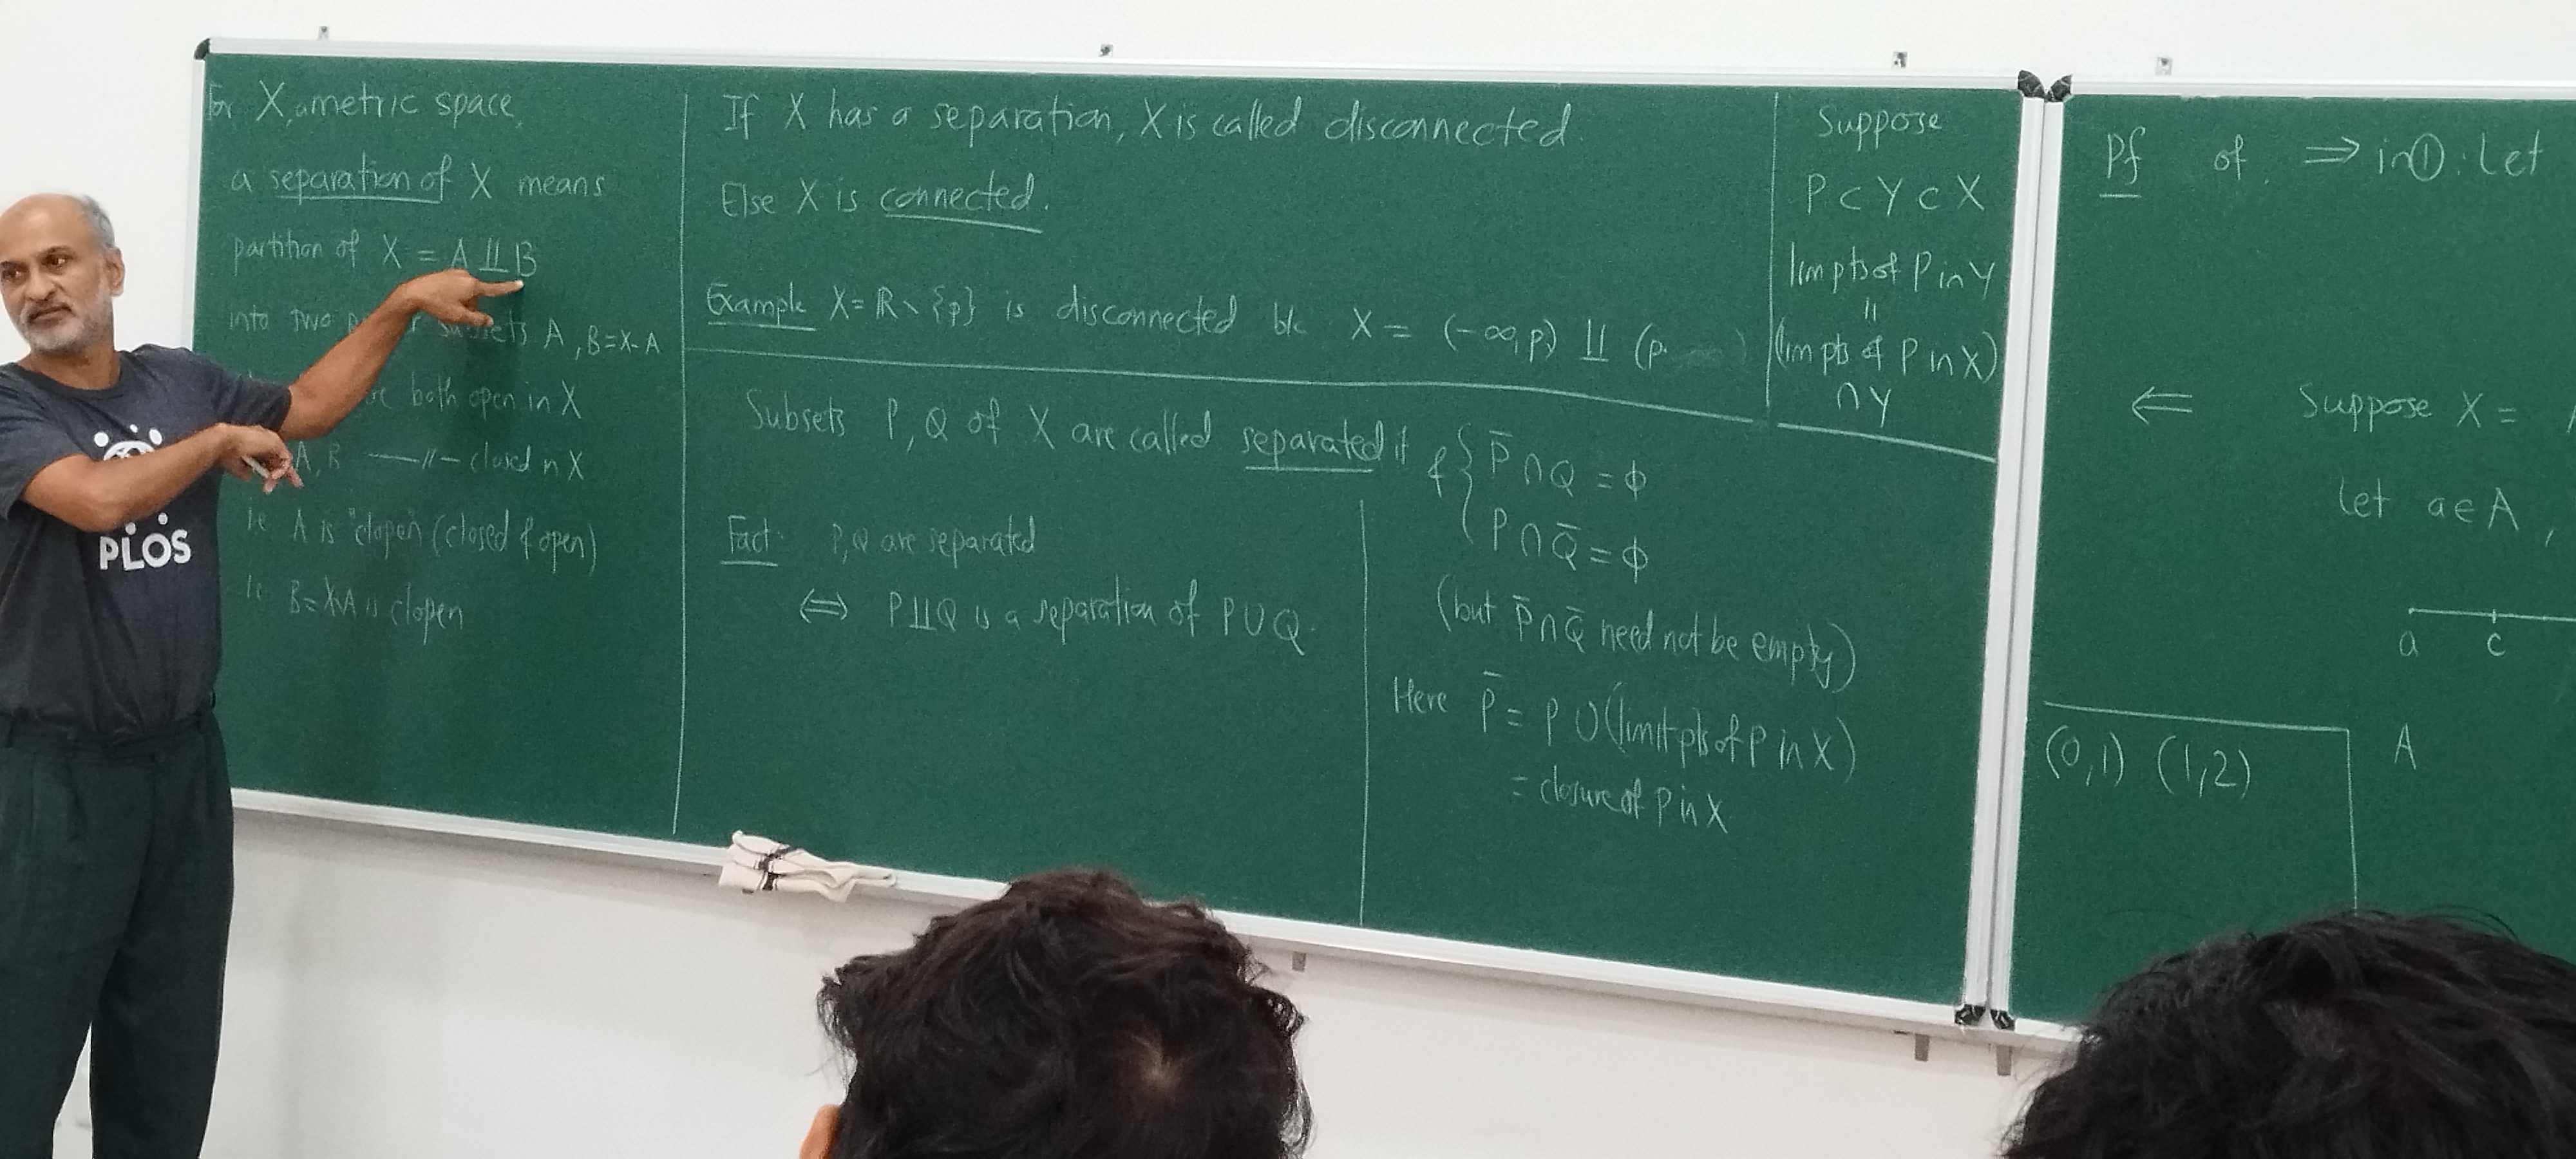 For X, a metric space,
a separation of X means
partition of X = A ⨿ B
into two subsets A, B=X-A
both open in X
A, B —〃— closed in X
i.e. A is "clopen" (closed & open)
i.e. B=X∖A is clopen
If X has a separation, X is called disconnected.
Else X is connected.
Example X=ℝ∖{p} is disconnected b/c X = (-∞, p) ⨿ (p.
Subsets P, Q of X are called separated if
P̄ ∩ Q = ϕ
&
P ∩ Q̄ = ϕ
(but P̄ ∩ Q̄ need not be empty)
Here P̄ = P ∪ (limit pts of P in X)
= closure of P in X
Fact: P, Q are separated
⇔ P ⨿ Q is a separation of P ∪ Q.
Suppose
P ⊂ Y ⊂ X
lim pts of P in Y
=
(lim pts of P in X)
∩ Y
Pf of ⇒ in ①: Let
⇐ Suppose X =
Let a ∈ A,
a c
(0,1) (1,2)
A
PLOS